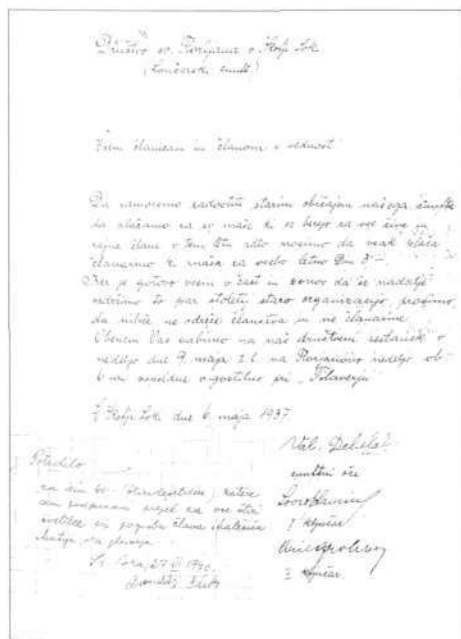 Društvo sv. Florijana v Škofji Loki
(Lončarski cunft.)
Vsem članicam in članom v vednost!
Da zamoremo zadostiti starim običajem našega cunfta
da plačamo za sv. maše ki se berejo za vse žive in
člane v tem letu zato prosimo da vsak plača
članarino ki znaša za celo leto Din 3 —
Ker je gotovo vsem v čast in ponos da še nadalje
vzdržimo to par stoletij staro organizacijo, prosimo,
da nihče ne odreče članstva in ne članarine.
Obenem Vas vabimo na naš društveni sestanek v
nedeljo dne 9. maja t. l. na Florjanovo nedeljo ob
uri v gostilno pri
V Škofji Loki dne 6. maja 1937.
Val.
cunftni oče
I ključar
II ključar.
Potrdilo
za din 60 (šestdeset din) katere
sem podpisani prejel za vse štiri
svetilce pri pogrebu člana
Sv. Duh, 27. VI 1940.